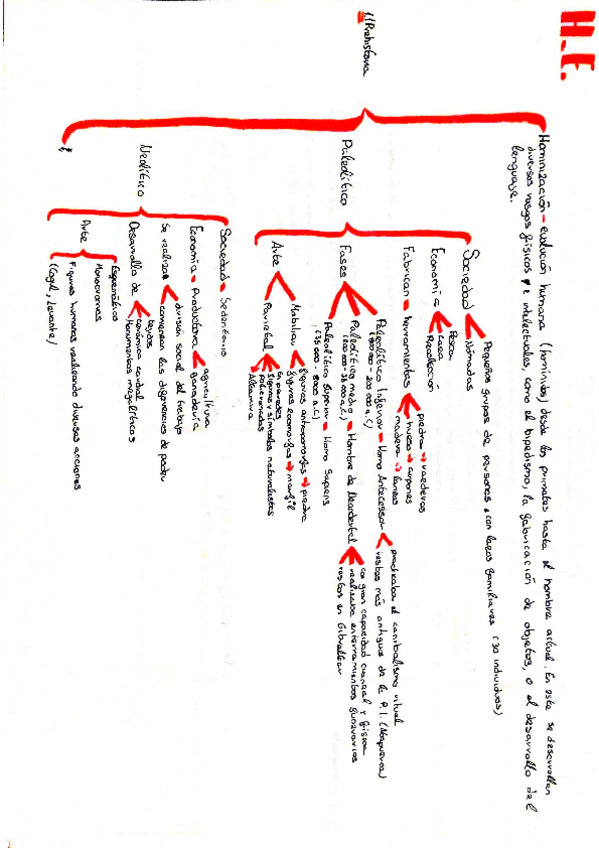 H.E.
Hominización - evolución humana (homínidos) desde los primates hasta el hombre actual. En este se desarrollan
diversos rasgos físicos e intelectuales, como el bipedismo, la fabricación de objetos, o el desarrollo del
lenguaje.
1/Prehistoria
Paleolítico
Sociedad
Pequeños grupos de personas, con lazos familiares (30 individuos)
Nómadas
Economía
Pesca
Caza
Recolección
Fabrican → herramientas
piedra → raederas
hueso → arpones
madera → lanzas
Fases
Paleolítico Inferior - Homo Antecessor
(800.000 - 200.000 a.C)
practicaba el canibalismo ritual
restos más antiguos de la P.I. (Atapuerca)
Paleolítico medio - Hombre de Neardental
(200.000 - 35.000 a.C)
con gran capacidad craneal y física
realizaba enterramientos funerarios
restos en Gibraltar
Paleolítico Superior - Homo Sapiens
(35.000 - 8000 a.C)
Arte
Mobiliar
figuras antropomorfas → piedra
figuras zoomorfas → marfil
Parietal
en paredes
signos y símbolos naturalistas
policromadas
Altamira
Neolítico
Sociedad - Sedentario
Economía - Productora
agricultura
ganadería
Se realiza
división social del trabajo
comienzan las diferencias de poder
Desarrollo de
tejidos
cerámica cardial
Monumentos megalíticos
Arte
Esquemático
Monocromas
Figuras humanas realizando diversas acciones
(Cogul, Levante)